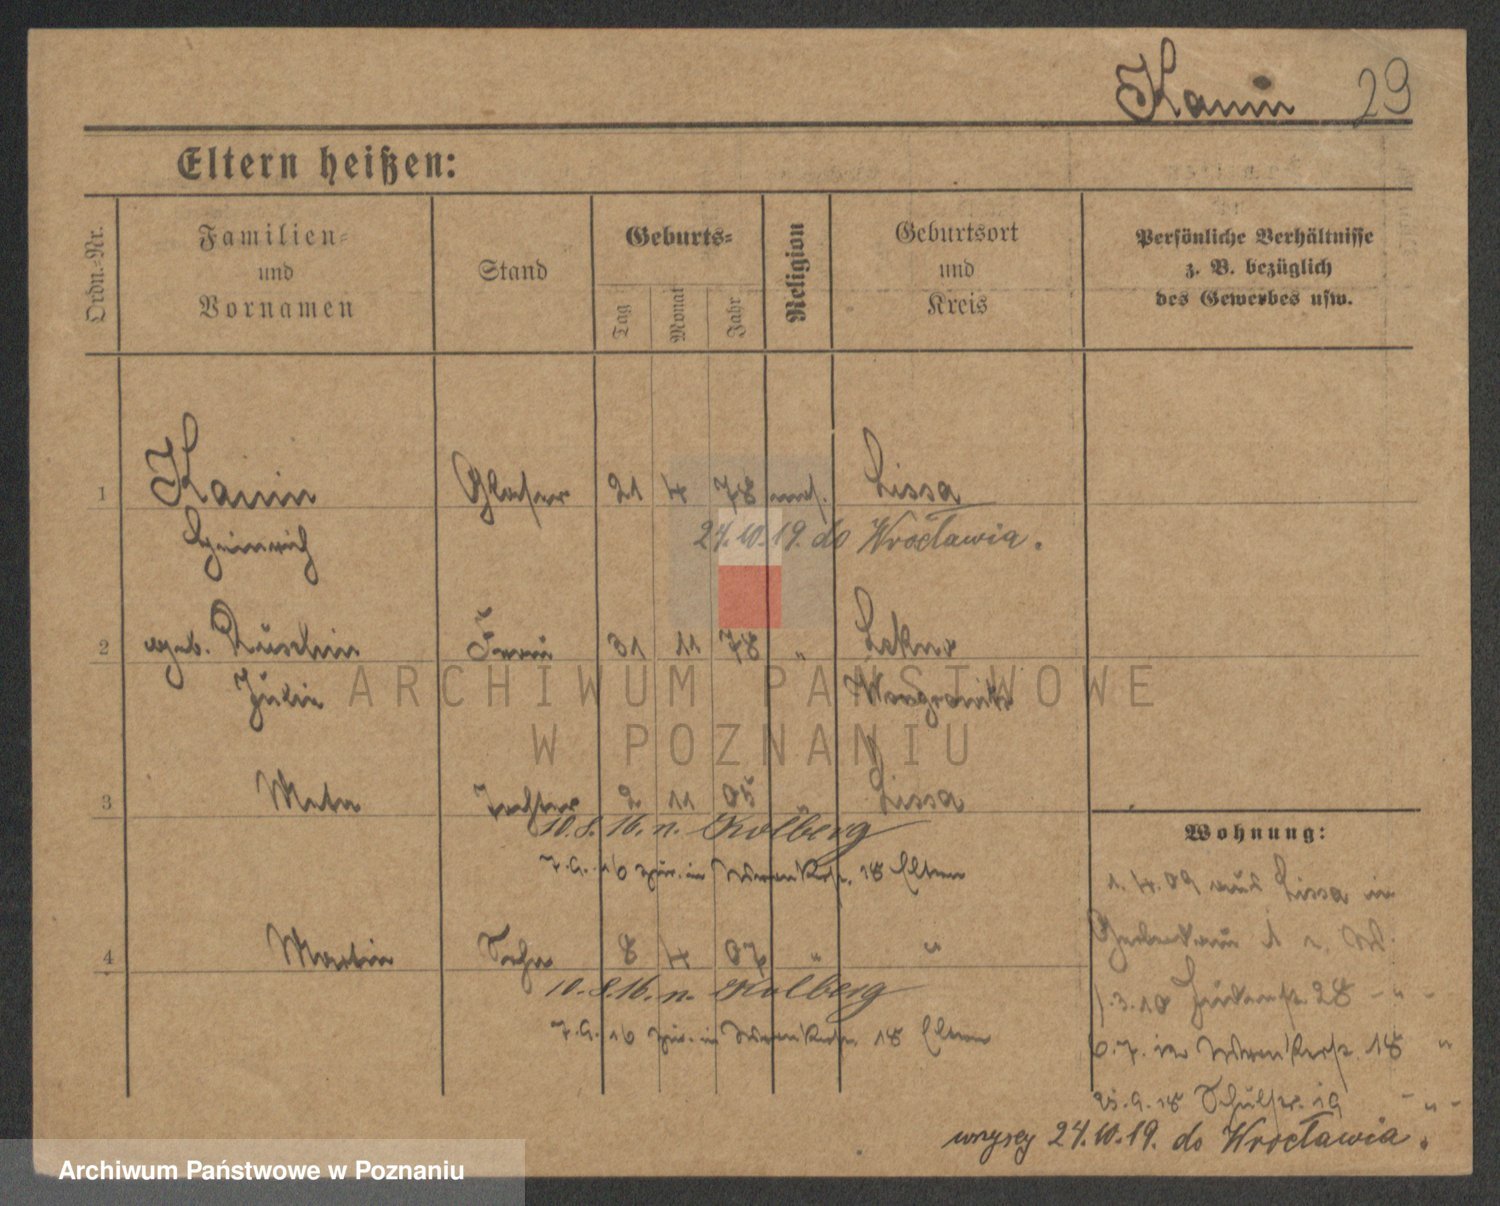 Kanin 29
Eltern heißen:
Ordn.-Nr.
Familien-
und
Vornamen
Stand
Geburts-
Tag
Monat
Jahr
Religion
Geburtsort
und
Kreis
Persönliche Verhältnisse
z. B. bezüglich
des Gewerbes usw.
1 Kanin Glaser 21 4 78 mos. Lissa
Heinrich 24.10.19. do Wrocławia.
2 geb. Frau 31 11 78 " Lekno
Julie Wongrowitz
3 Meta Tochter 2 11 05 Lissa
10.8.16. n. Kolberg
7.9.16 zur. in 18 Eltern
4 Martin Sohn 8 4 07 " "
10.8.16. n. Kolberg
7.9.16 zur. in 18 Eltern
Wohnung:
1.4.09 aus Lissa in
1
1.3.10 Judenstr. 28 - " -
6.7. in 18 "
25.9.18 Schulstr. 19 - " -
wszyscy 24.10.19. do Wrocławia.
ARCHIWUM PAŃSTWOWE
W POZNANIU
Archiwum Państwowe w Poznaniu